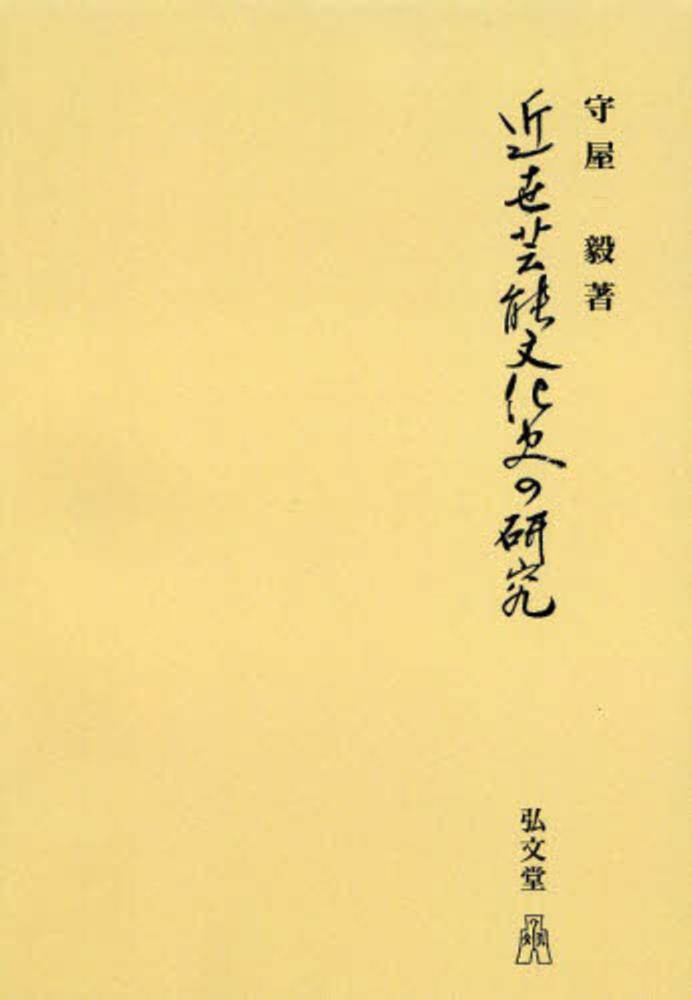 守屋 毅著
近世芸能文化史の研究
弘文堂